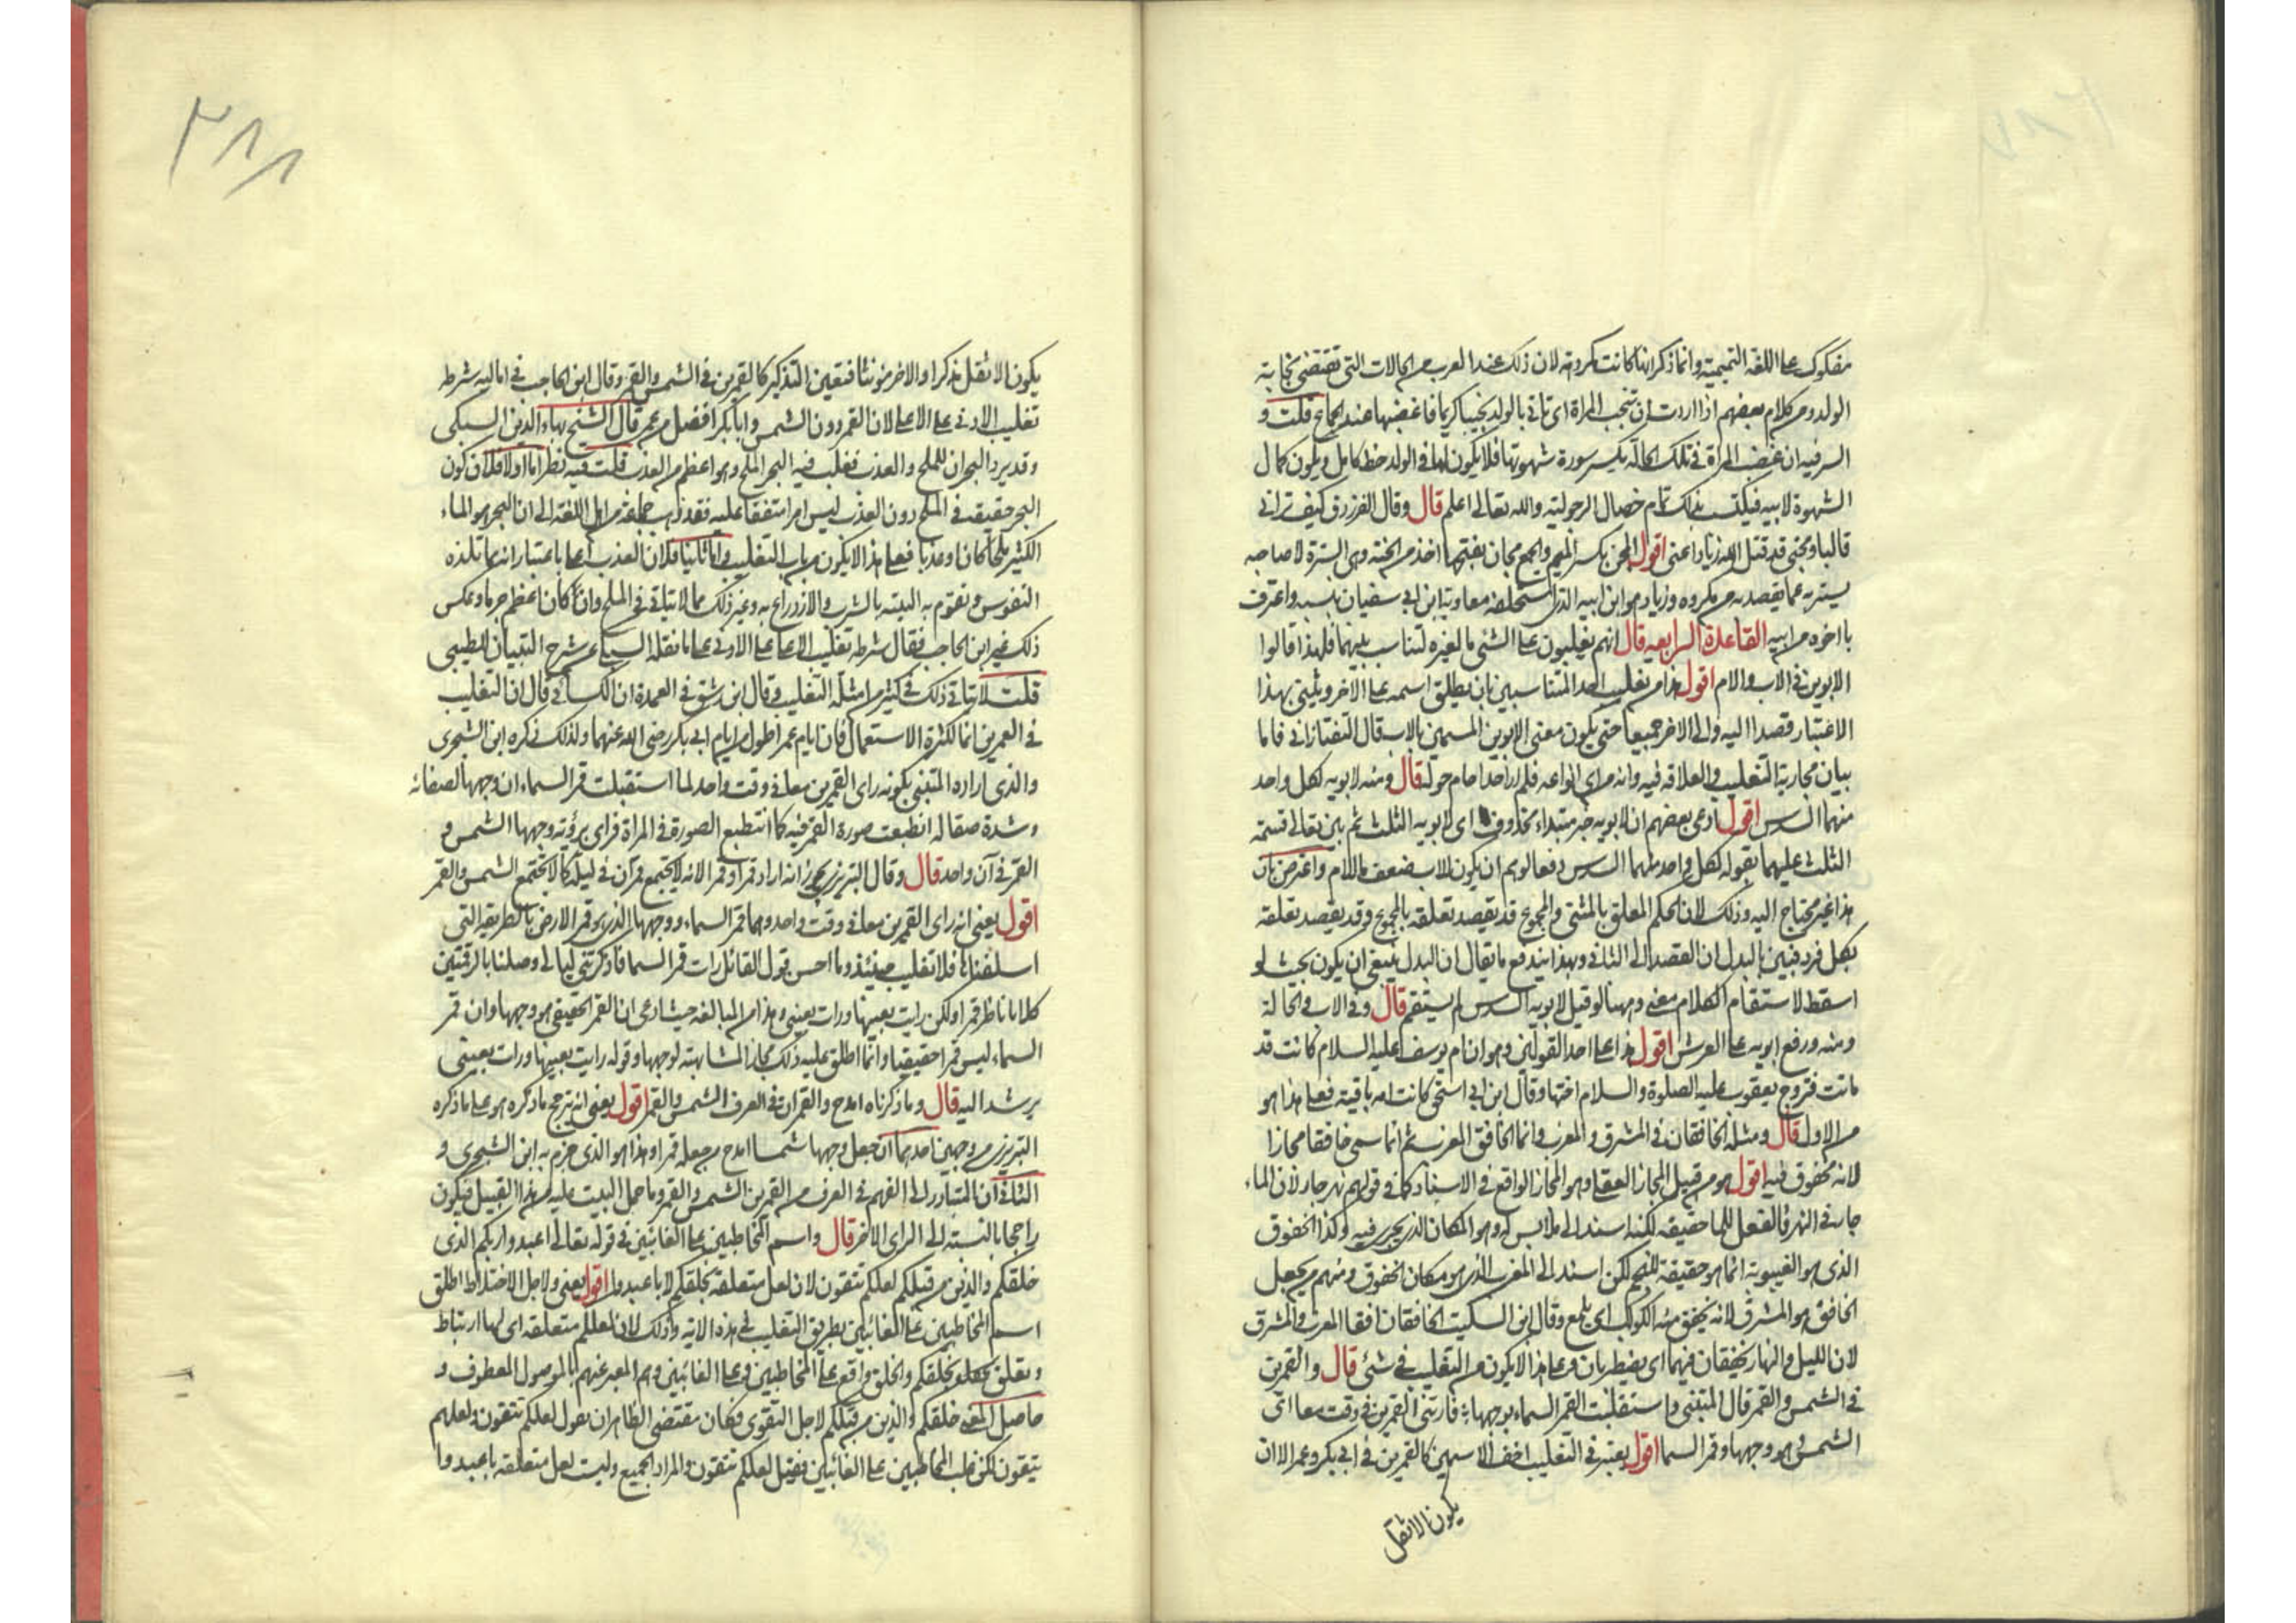 مفكوك على اللغة التميمية وانما ذكر انها كانت مكروهة لان ذلك عند العرب من الحالات التي تقتضي نجابة
الولد ومن كلام بعضهم اذا اردت ان تنجب المراة اي تاتي بالولد نجيبا كريما فاغضبها عند الجماع قلت و
السر فيه ان غضب المراة في تلك الحالة يكسر سورة شهوتها فلا يكون لها في الولد حظ كامل ويكون كمال
الشهوة لابيه فيكتسب بذلك تمام خصال الرجولية والله تعالى اعلم قال وقال الفرزدق كيف تراني
قالبا مجني قد قتل الله زيادا عني اقول المجن بكسر الميم والجمع مجان بفتحها اخذ من الجنة وهي السترة لان صاحبه
يستتر به عما يقصد به من مكروه وزياد هو ابن ابيه الذي استلحقه معاوية ابن ابي سفيان بنسبه واعترف
باخوته من ابيه القاعدة الرابعه قال انهم يغلبون على الشئ ما لغيره لتناسب بينهما فلهذا قالوا
الابوين في الاب والام اقول هذا من تغليب احد المتناسبين بان يطلق اسمه على الاخر ويثنى بهذا
الاعتبار قصدا اليه والى الاخر جميعا حتى يكون معنى الابوين المسمين بالاب قال التفتازاني فاما
بيان مجازية التغليب والعلاقة فيه وانه من اي انواعه فلم ار احدا حام حوله قال ومنه لابويه لكل واحد
منهما السدس اقول ادعى بعضهم ان لابويه خبر مبتداء محذوف اي لابويه الثلث ثم بين تعالى قسمة
الثلث عليهما بقوله لكل واحد منهما السدس دفعا لوهم ان يكون للاب ضعف ما للام واعترض بان
هذا غير محتاج اليه وذلك لان الحكم المعلق بالمثنى والمجموع قد يقصد تعلقه بالمجموع وقد يقصد تعلقه
بكل فرد فبين بالبدل ان القصد الى الثاني وبهذا يندفع ما يقال ان البدل ينبغي ان يكون بحيث لو
اسقط لاستقام الكلام معنى وههنا لو قيل لابويه السدس لم يستقم قال وفي الاب والخالة
ومنه ورفع ابويه على العرش اقول هذا على احد القولين وهو ان ام يوسف عليه السلام كانت قد
ماتت فتزوج يعقوب عليه الصلوة والسلام اختها وقال ابن ابي اسحق كانت امه باقية فعلى هذا هو
من الاول قال ومثله الخافقان في المشرق والمغرب وانما الخافق المغرب ثم انما سمي خافقا مجازا
لانه مخفوق فيه اقول هو من قبيل المجاز العقلي وهو المجاز الواقع في الاسناد كما في قولهم نهر جار لان الماء
جار في النهر فالفعل للماء حقيقة لكنه اسند الى ملابس له وهو المكان الذي يجري فيه وكذا الخفوق
الذي هو الغيبوبة انما هو حقيقة للنجم لكن اسند الى المغرب الذي هو مكان الخفوق ومنهم من يجعل
الخافق هو المشرق لانه يخفق منه الكوكب اي يلمع وقال ابن السكيت الخافقان افقا المغرب والمشرق
لان الليل والنهار يخفقان فيهما اي يضطربان وعلى هذا لا يكون من التغليب في شئ قال والقمرين
في الشمس والقمر قال المتنبي واستقبلت القمر السماء بوجهها فارتني القمرين في وقت معا اي
الشمس هو وجهها وقمر السما اقول يعتبر في التغليب اخف الاسمين كالعمرين في ابي بكر وعمر الا ان
يكون الاثقل
٢٨٨
يكون الاثقل مذكرا والاخر مؤنثا فتعين التذكير كالقمرين في الشمس والقمر وقال ابن الحاجب في اماليه شرطه
تغليب الادنى على الاعلى لان القمر دون الشمس وابا بكر افضل من عمر قال الشيخ بهاء الدين السبكي
وقد يرد البحران للملح والعذب فغلب فيه البحر الملح وهو اعظم من العذب قلت فيه نظر اما اولا فلان كون
البحر حقيقة في الملح دون العذب ليس امرا متفقا عليه فقد ذهب جماعة من اهل اللغة الى ان البحر هو الماء
الكثير ملحا كان او عذبا فعلى هذا لا يكون من باب التغليب واما ثانيا فلان العذب اعلى باعتبار انه مما تلذه
النفوس وتقوم به البنية بالشرب والازدراع به وغير ذلك مما لا يتاتى في الملح وان كان اعظم جرما وعكس
ذلك غير ابن الحاجب فقال شرطه تغليب الاعلى على الادنى على ما نقله السبكي عن شرح التبيان للطيبي
قلت لا يتاتى ذلك في كثير من امثلة التغليب وقال ابن رشيق في العمدة ان الكسائي قال ان التغليب
في العمرين انما لكثرة الاستعمال فان ايام عمر اطول من ايام ابي بكر رضي الله عنهما ولذلك ذكره ابن الشجري
والذي اراده المتنبي بكونه راى القمرين معا في وقت واحد لما استقبلت قمر السماء ان وجهها لصفائه
وشدة صقاله انطبعت صورة القمر فيه كما تنطبع الصورة في المراة فراى برؤية وجهها الشمس و
القمر في آن واحد قال وقال التبريزي يجوز انه اراد قمرا وقمرا لانه لا يجتمع قمران في ليلة كما لا تجتمع الشمس والقمر
اقول يعني انه راى القمرين معا في وقت واحد وهما قمر السماء ووجهها الذي هو قمر الارض بالطريقة التي
اسلفناها فلا تغليب حينئذ وما احسن قول القائل رات قمر السما فاذكرتني ليالي وصلنا بالرقمتين
كلانا ناظر قمرا ولكن رايت بعينها ورات بعيني وهذا من المبالغة حيث ادعى ان القمر الحقيقي هو وجهها وان قمر
السماء ليس قمرا حقيقيا وانما اطلق عليه ذلك مجازا لمشابهته لوجهها وقوله رايت بعينها ورات بعيني
يرشد اليه قال وما ذكرناه امدح والقمران في العرف الشمس والقمر اقول يعني انه ترجح ما ذكره هو على ما ذكره
التبريزي من وجهين احدهما ان جعل وجهها شمسا امدح من جعله قمرا وهذا هو الذي جزم به ابن الشجري و
الثاني ان المتبادر الى الفهم في العرف من القمرين الشمس والقمر وما حمل البيت عليه من هذا القبيل فيكون
راجحا بالنسبة الى الراى الاخر قال واسم المخاطبين على الغائبين في قوله تعالى اعبدوا ربكم الذي
خلقكم والذين من قبلكم لعلكم تتقون لان لعل متعلقة بخلقكم لا باعبدوا اقول يعني ولاجل الاختلاط اطلق
اسم المخاطبين على الغائبين بطريق التغليب في هذه الاية وذلك لان لعلكم متعلقة اي لها ارتباط
وتعلق بخلقكم والخلق واقع على المخاطبين وعلى الغائبين وهم المعبر عنهم بالموصول المعطوف و
حاصل المعنى خلقكم والذين من قبلكم لاجل التقوى فكان مقتضى الظاهر ان يقول لعلكم تتقون ولعلهم
يتقون لكن غلب المخاطبين على الغائبين فقيل لعلكم تتقون والمراد الجميع وليست لعل متعلقة باعبدوا